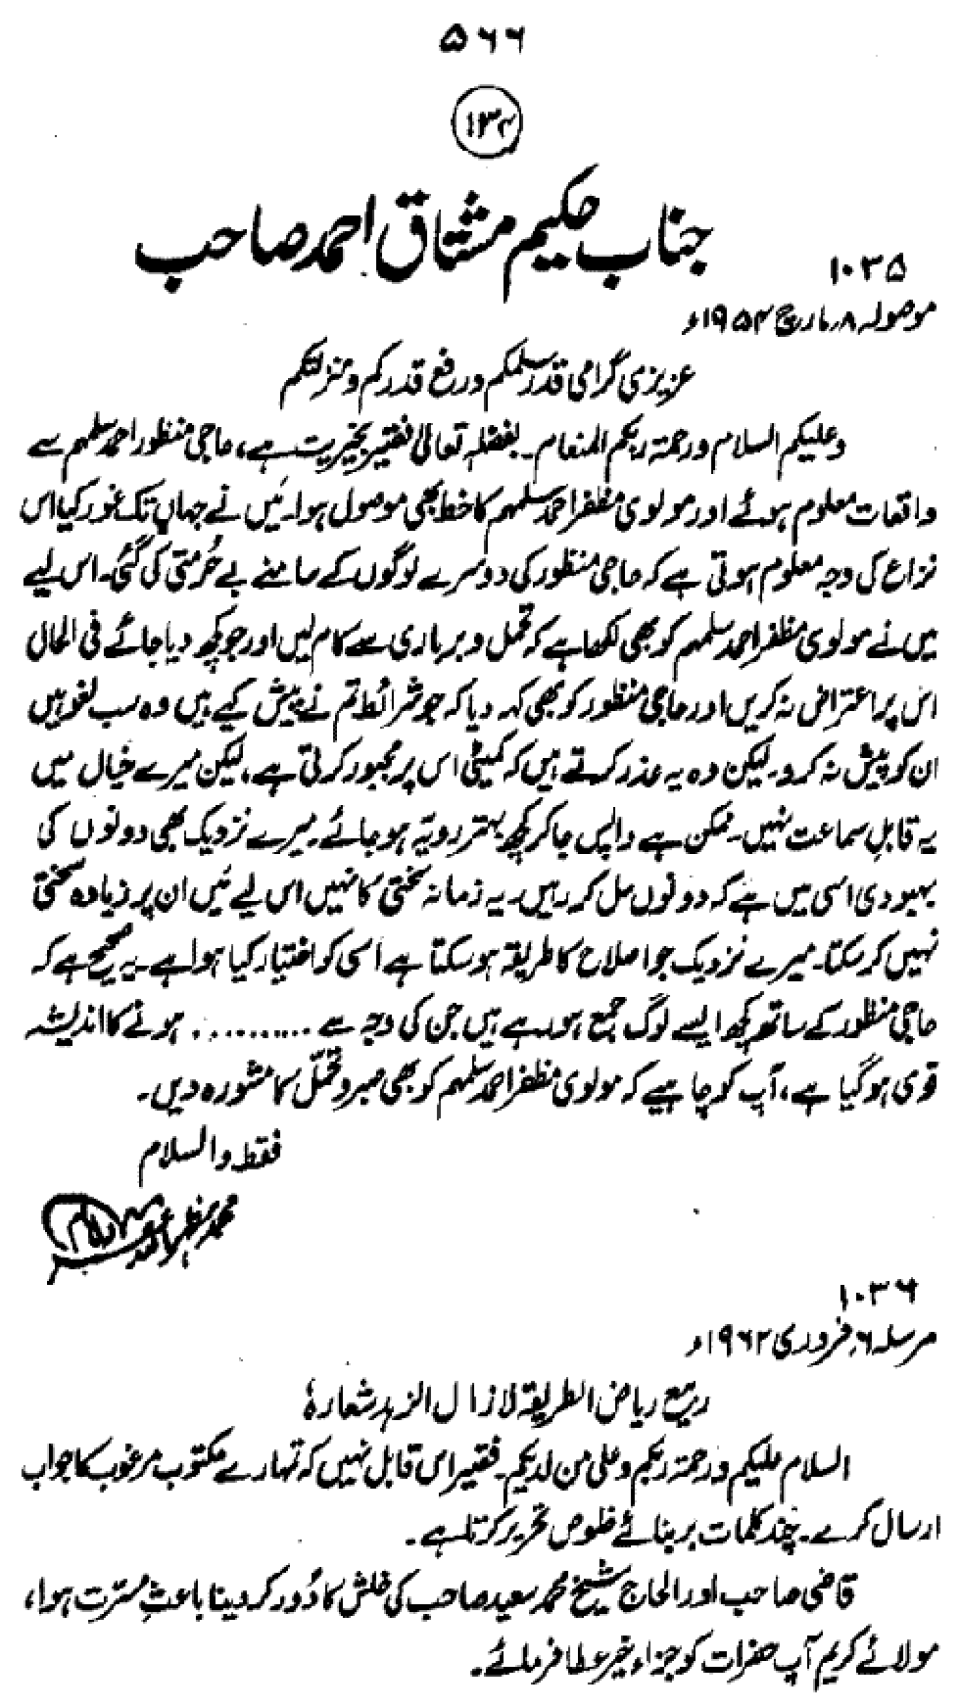 ۵۶۶
۱۳۴
جناب حکیم مشتاق احمد صاحب
۱۰۳۵
موصولہ ۸؍ مارچ ۱۹۵۴ء
عزیزی گرامی قدر سلمکم و رفع قدرکم و منزلتکم
وعلیکم السلام ورحمۃ ربکم المنعام۔ بفضلہ تعالیٰ فقیر بخیریت ہے، حاجی منظور احمد سلمہم سے
واقعات معلوم ہوئے اور مولوی مظفر احمد سلمہم کا خط بھی موصول ہوا۔ میں نے جہاں تک غور کیا اس
نزاع کی وجہ معلوم ہوتی ہے کہ حاجی منظور کی دوسرے لوگوں کے سامنے بے حُرمتی کی گئی۔ اس لیے
میں نے مولوی مظفر احمد سلمہم کو بھی لکھا ہے کہ تحمل و بربادی سے کام لیں اور جو کچھ دیا جائے فی الحال
اس پر اعتراض نہ کریں اور حاجی منظور کو بھی کہہ دیا کہ جو شرائط تم نے پیش کیے ہیں وہ سب لغو ہیں
ان کو پیش نہ کرو۔ لیکن وہ یہ عذر کرتے ہیں کہ کمیٹی اس پر مجبور کرتی ہے، لیکن میرے خیال میں
یہ قابلِ سماعت نہیں۔ ممکن ہے واپس جا کر کچھ بہتر رویہ ہو جائے۔ میرے نزدیک بھی دونوں کی
بہبودی اسی میں ہے کہ دونوں مل کر رہیں۔ یہ زمانہ سختی کا نہیں اس لیے میں ان پر زیادہ سختی
نہیں کر سکتا۔ میرے نزدیک جو اصلاح کا طریقہ ہو سکتا ہے اسی کو اختیار کیا ہوا ہے۔ یہ صحیح ہے کہ
حاجی منظور کے ساتھ کچھ ایسے لوگ جمع ہو رہے ہیں جن کی وجہ سے ........... ہونے کا اندیشہ
قوی ہو گیا ہے، آپ کو چاہیے کہ مولوی مظفر احمد سلمہم کو بھی صبر و تحمّل کا مشورہ دیں۔
فقط والسلام
محمد مظہر اللہ
۱۰۳۶
مرسلہ ۶؍ فروری ۱۹۶۲ء
ربیع ریاض الطریقۃ لازال الزہد شعارہٗ
السلام علیکم ورحمۃ ربکم وعلیٰ من لدیکم۔ فقیر اس قابل نہیں کہ تمہارے مکتوب مرغوب کا جواب
ارسال کرے۔ چند کلمات بر بنائے خلوص تحریر کرتا ہے۔
قاضی صاحب اور الحاج شیخ محمد سعید صاحب کی خلش کا دُور کر دینا باعثِ مسرّت ہوا،
مولائے کریم آپ حضرات کو جزاءِ خیر عطا فرمائے۔